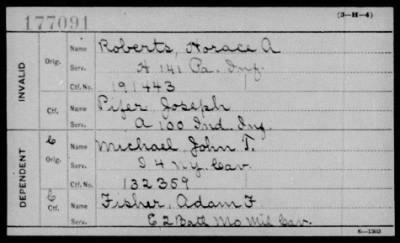 177091
(3-H-4)
INVALID
Orig.
Name Roberts, Horace A
Serv. H 141 Pa. Inf.
Ctf. No. 191443
Ctf.
Name Pifer Joseph
Serv. A 100 Ind. Inf.
DEPENDENT
C
Orig.
Name Michael, John T.
Serv. I 4 N.Y. Cav.
Ctf. No. 132359
C
Ctf.
Name Fisher, Adam F
Serv. E 2 Batt Mo Mil Cav.
6-1303